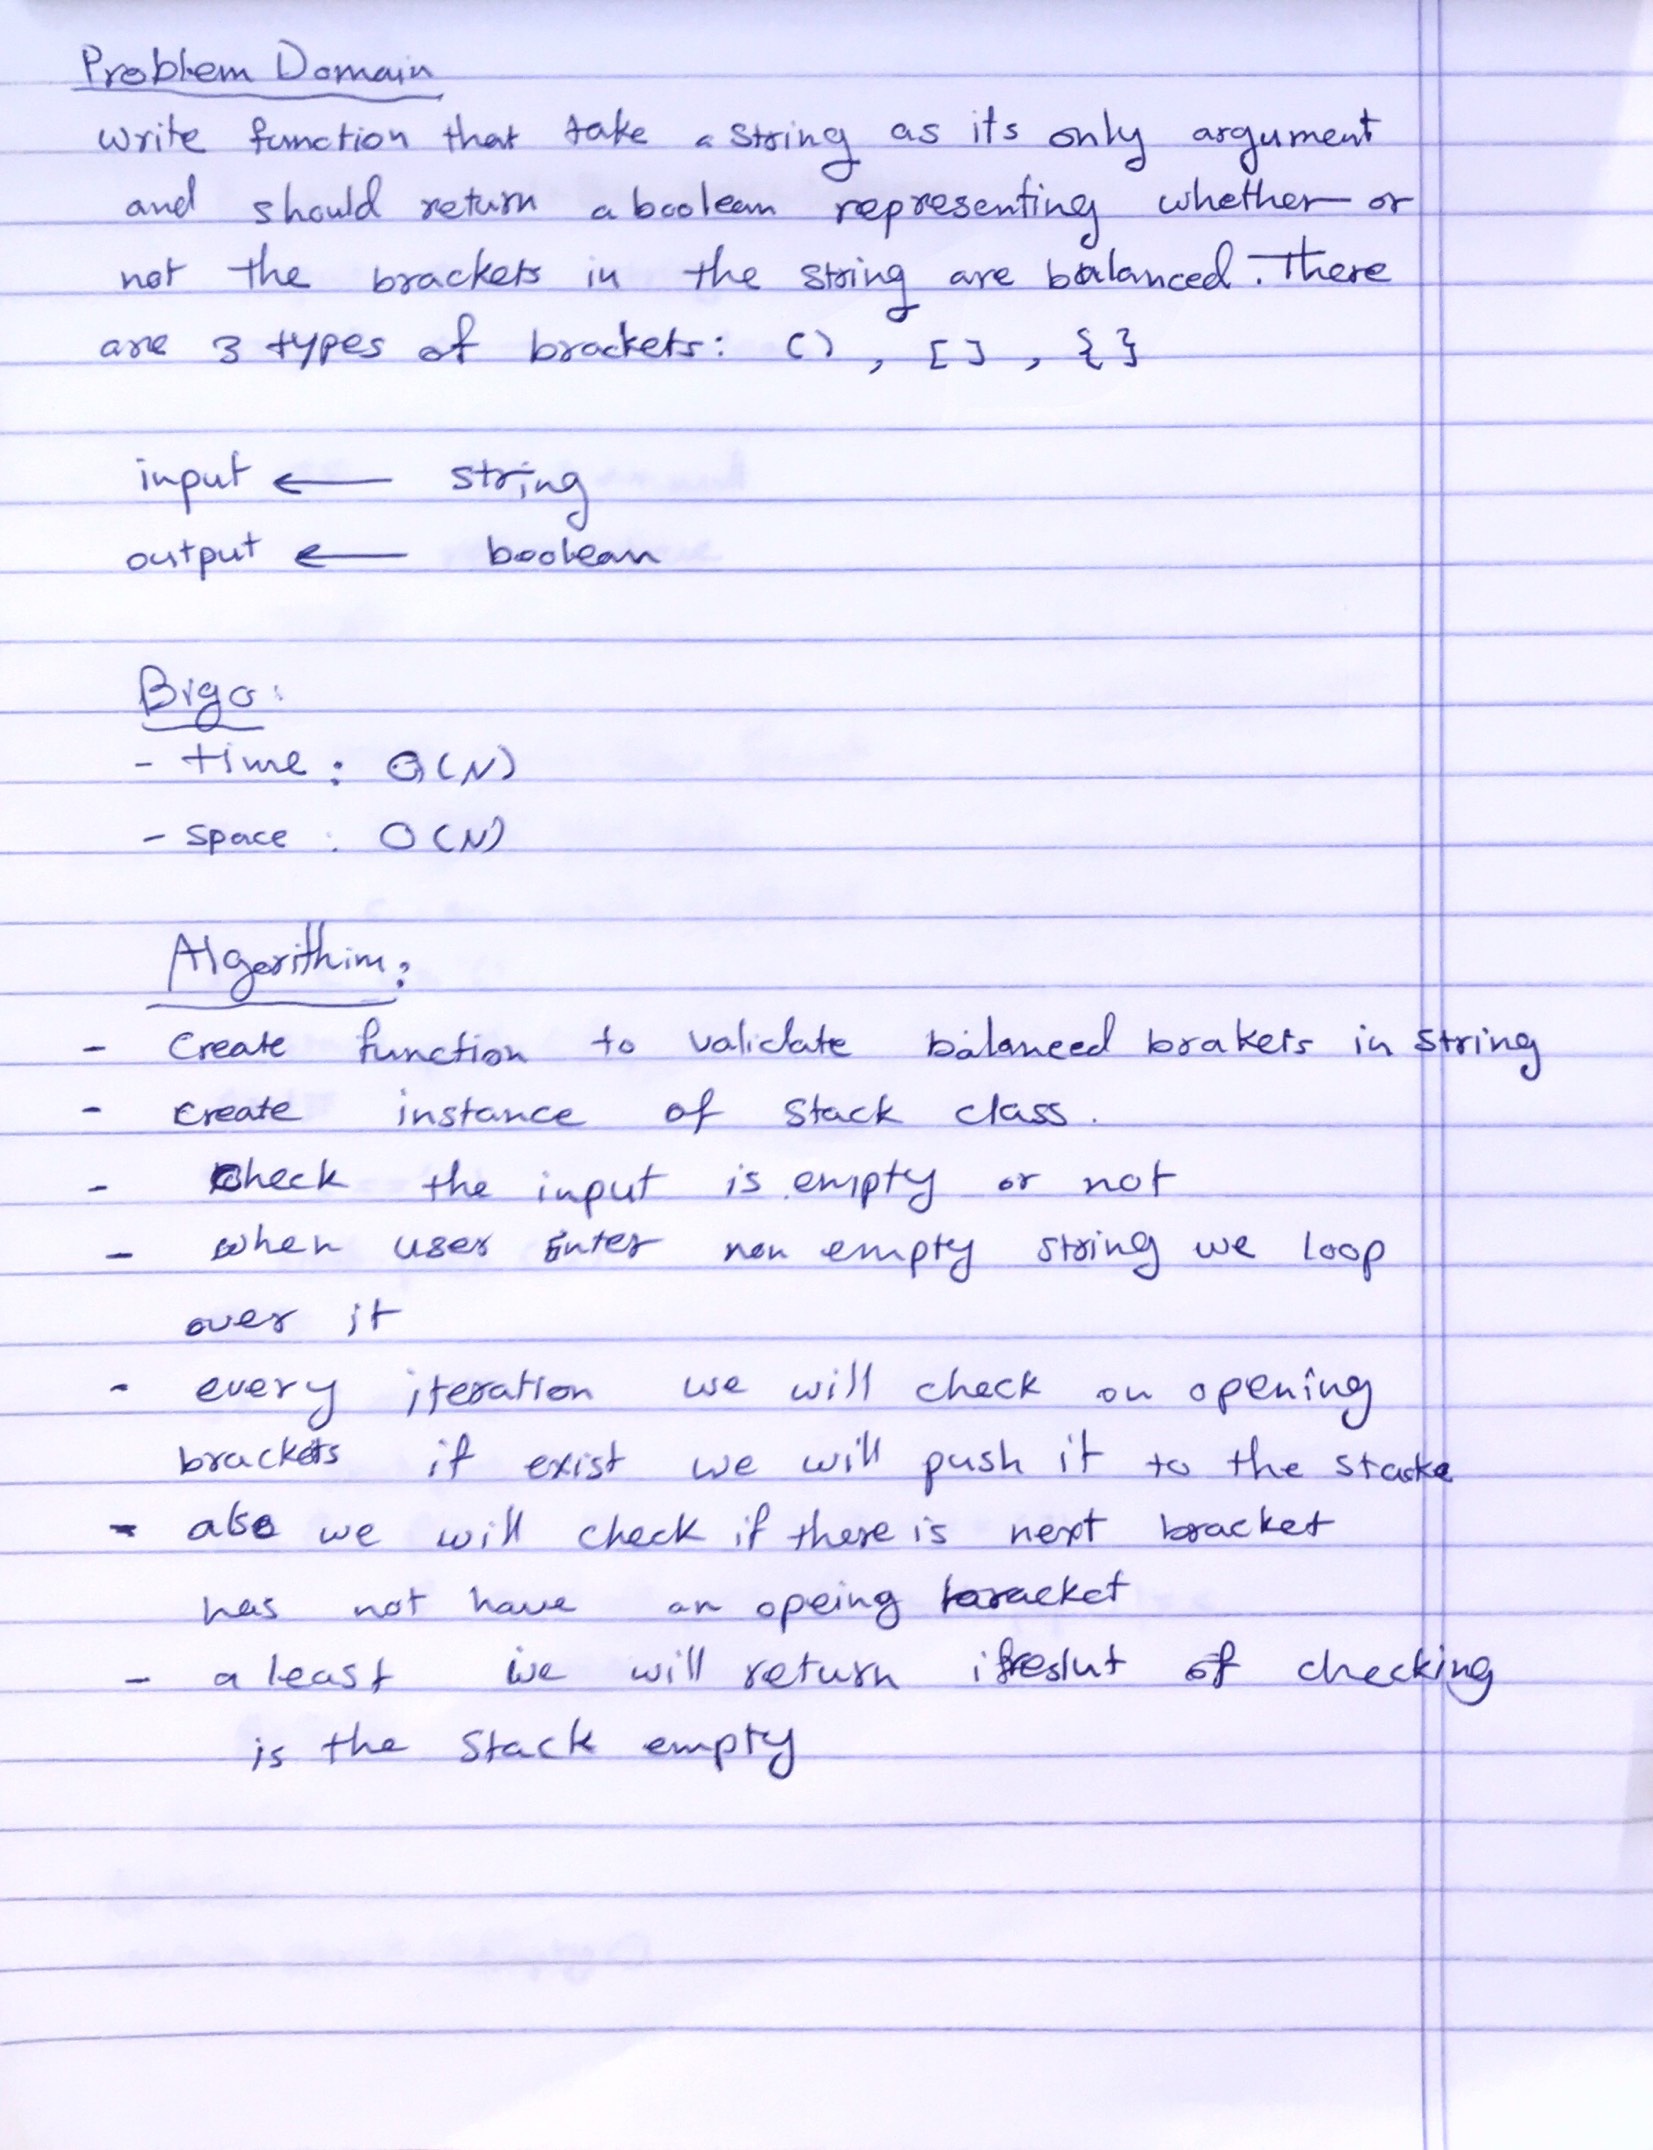 Problem Domain
write function that take a string as its only argument
and should return a boolean representing whether or
not the brackets in the string are balanced. There
are 3 types of brackets: () , [] , {}
input ← string
output ← boolean
Bigo:
- time : O(N)
- space : O(N)
Algorithim:
- create function to validate balanced brakets in string
- create instance of stack class.
- check the input is empty or not
- when user Enter non empty string we loop
over it
- every iteration we will check on opening
brackets if exist we will push it to the stacke
- also we will check if there is next bracket
has not have an opeing bracket
- a least we will return reslut of checking
is the stack empty